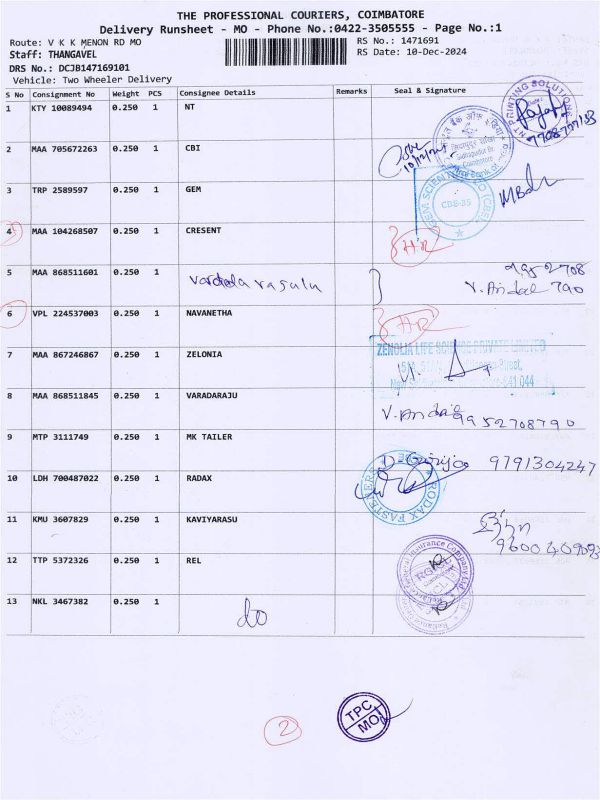 THE PROFESSIONAL COURIERS, COIMBATORE
Delivery Runsheet - MO - Phone No.:0422-3505555 - Page No.:1
Route: V K K MENON RD MO
RS No.: 1471691
Staff: THANGAVEL
RS Date: 10-Dec-2024
DRS No.: DCJB147169101
Vehicle: Two Wheeler Delivery
S No Consignment No Weight PCS Consignee Details Remarks Seal & Signature
1 KTY 10089494 0.250 1 NT
PRINTING SOLUTIONS
2 MAA 705672263 0.250 1 CBI
10/12/24
3 TRP 2589597 0.250 1 GEM
CBE-35
4 MAA 104268507 0.250 1 CRESENT
5 MAA 868511601 0.250 1 Vardala rasulu
9952708
V. Andal 790
6 VPL 224537003 0.250 1 NAVANETHA
7 MAA 867246867 0.250 1 ZELONIA
ZENOLIA LIFE SCIENCE PRIVATE LIMITED
641 044
8 MAA 868511845 0.250 1 VARADARAJU
V. Andal 9952708790
9 MTP 3111749 0.250 1 MK TAILER
D. Girija 9791304247
10 LDH 700487022 0.250 1 RADAX
RODAX FASTENERS
11 KMU 3607829 0.250 1 KAVIYARASU
12 TTP 5372326 0.250 1 REL
13 NKL 3467382 0.250 1 do
TPC
MO
2